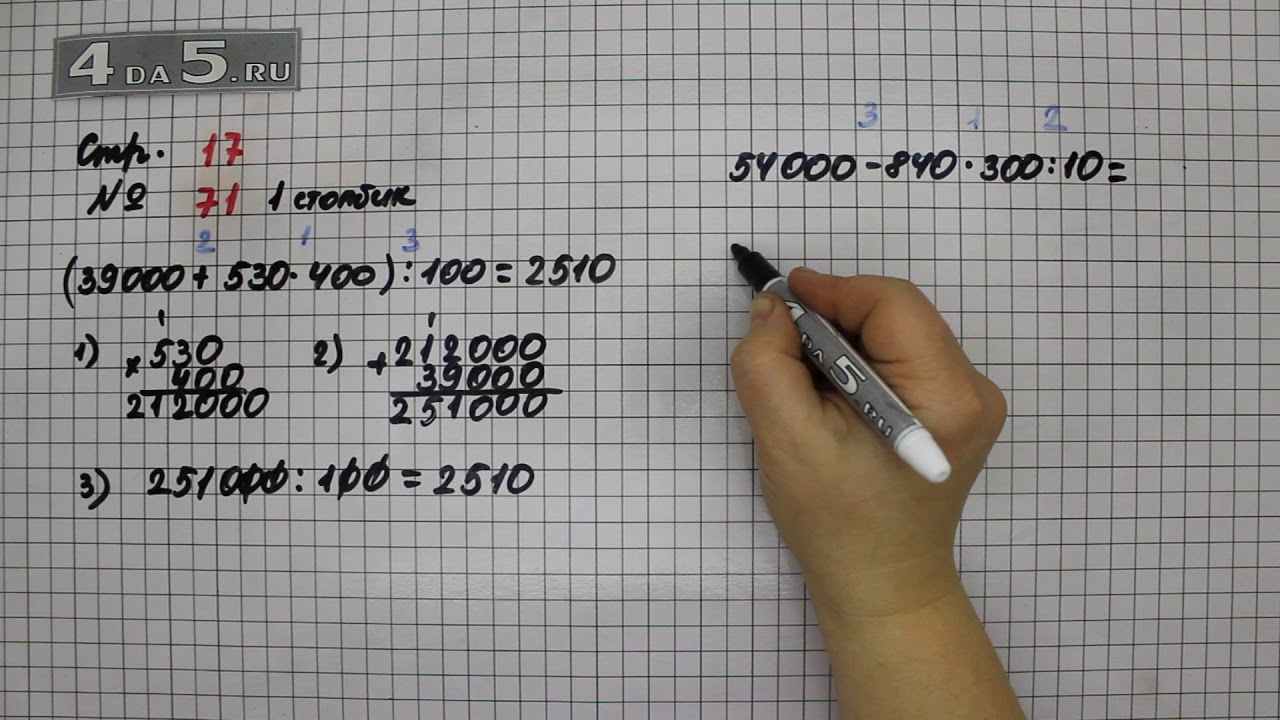 4 DA 5.RU
Стр. 17
№ 71 1 столбик
2 1 3
(39000 + 530 · 400) : 100 = 2510
1)
1
× 530
400
212000
2)
1
+ 212000
39000
251000
3) 251000 : 100 = 2510
3 1 2
54000 - 840 · 300 : 10 =
4 DA 5.RU